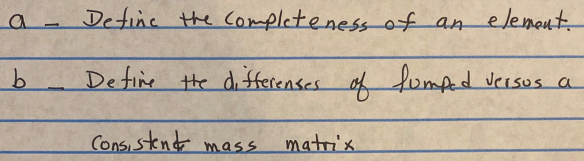 a - Define the completeness of an element.
b - Define the differenses of lumped versus a
consistent mass matrix